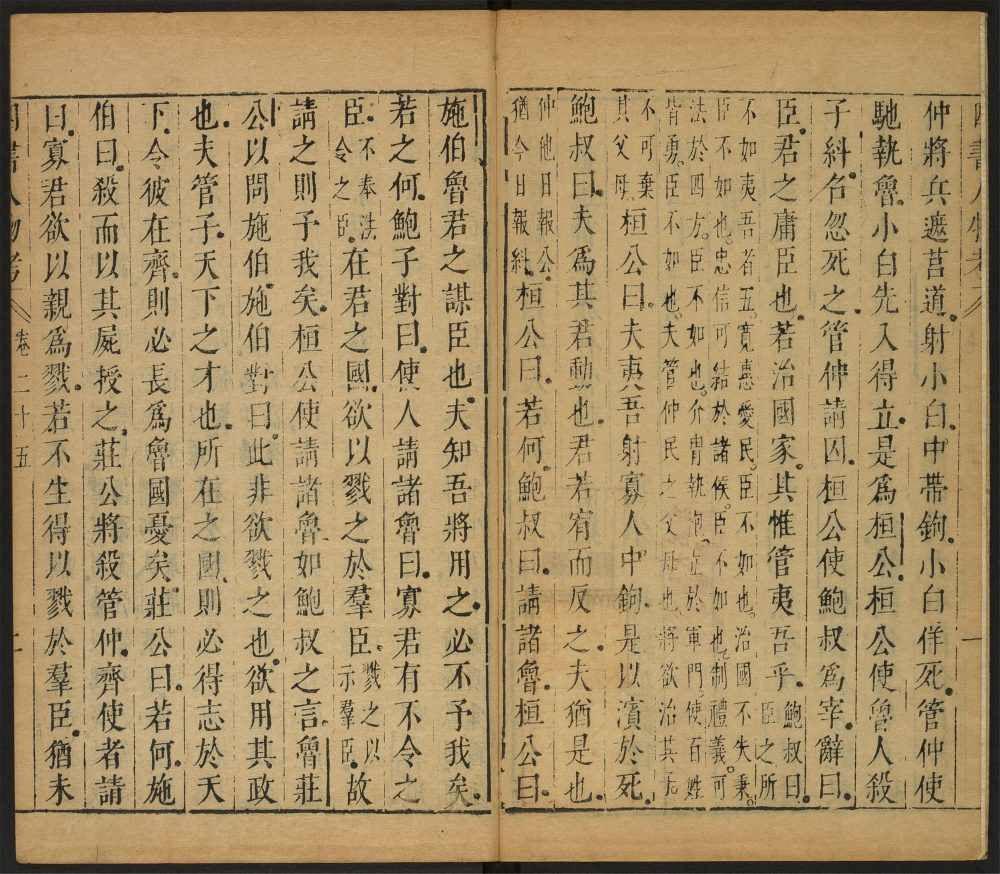 仲將兵遮莒道射小白中帶鉤小白佯死管仲使
馳執魯小白先入得立是爲桓公桓公使魯人殺
子糾召忽死之管仲請囚桓公使鮑叔爲宰辭曰
臣君之庸臣也若治國家其惟管夷吾乎鮑叔曰臣之所
不如夷吾者五寬惠愛民臣不如也治國不失秉
臣不如也忠信可結於諸候臣不如也制禮義可
法於四方臣不如也介冑執枹立於軍門使百姓
皆勇臣不如也夫管仲民之父母也將欲治其
不可棄其父母桓公曰夫夷吾射寡人中鉤是以濱於死
鮑叔曰夫爲其君動也君若宥而反之夫猶是也
仲他日報公猶今日報糾桓公曰若何鮑叔曰請諸魯桓公曰
施伯魯君之謀臣也夫知吾將用之必不予我矣
若之何鮑子對曰使人請諸魯曰寡君有不令之
臣不奉法令之臣在君之國欲以戮之於羣臣戮之以示羣臣故
請之則予我矣桓公使請諸魯如鮑叔之言魯莊
公以問施伯施伯對曰此非欲戮之也欲用其政
也夫管子天下之才也所在之國則必得志於天
下令彼在齊則必長爲魯國憂矣莊公曰若何施
伯曰殺而以其屍授之莊公將殺管仲齊使者請
曰寡君欲以親爲戮若不生得以戮於羣臣猶未
書人物考 卷二十五 二